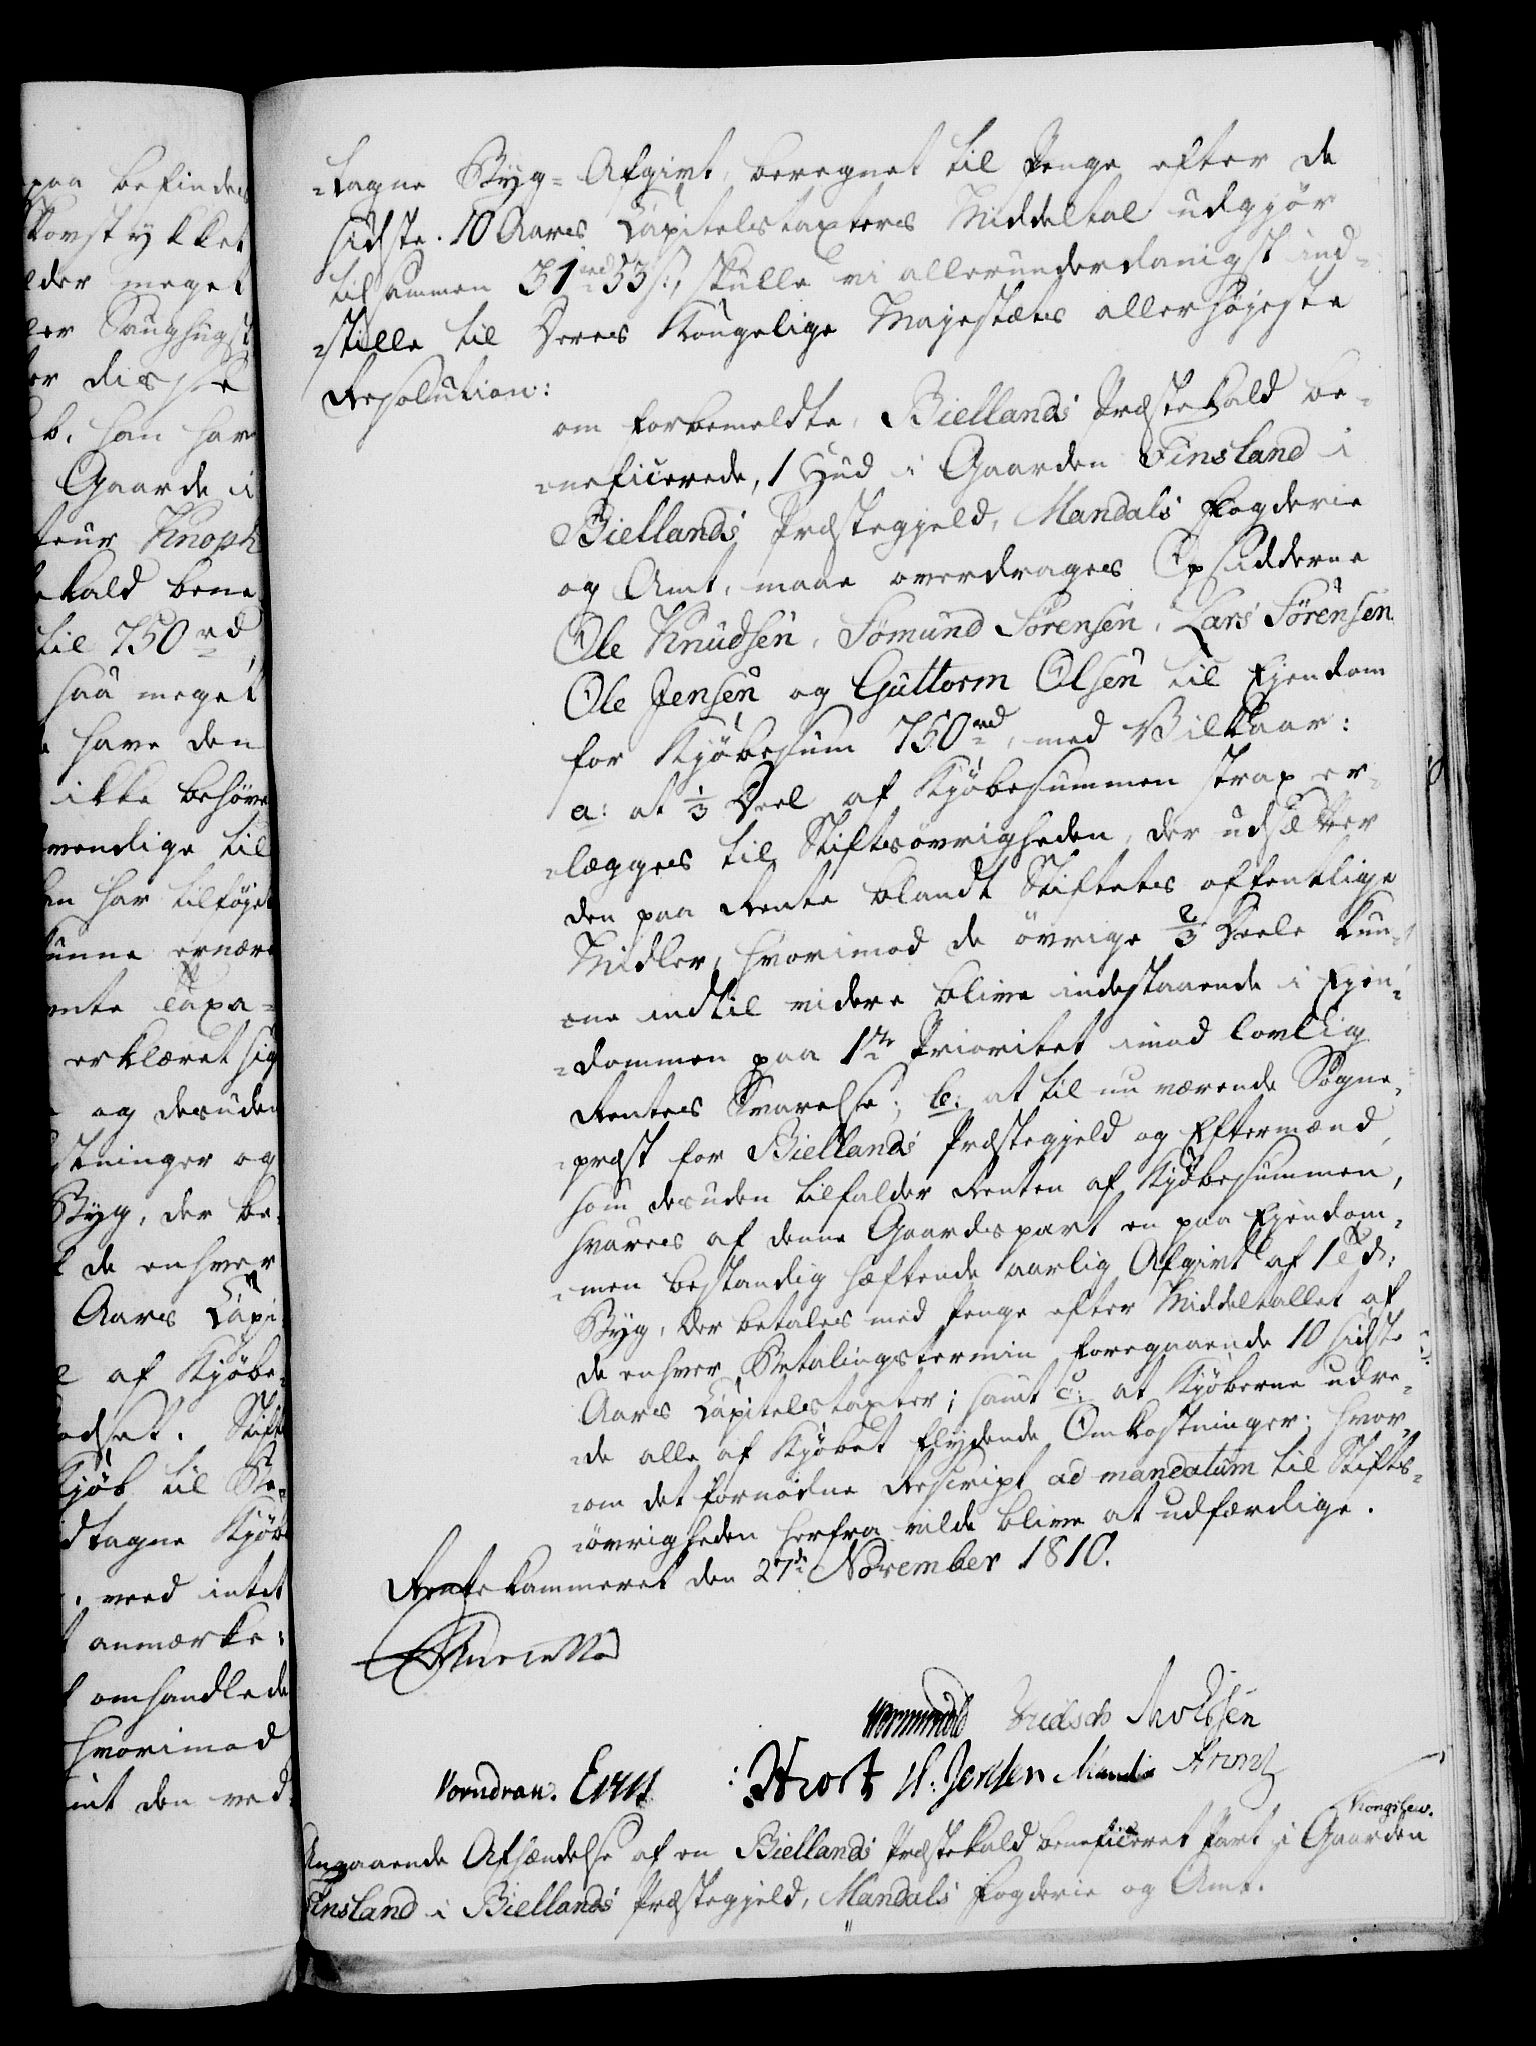 paa befindes
Skovstykket
lder meget
ler Saughugst
er disse
b. han har
Gaarde i
teur Knoph
ekald bene
til 750 rd,
saa meget
e have den
ikke behøve
vendige til
en har tilføjet
kunne ernære
ente Taxa-
erklæret sig
og desuden
stninger og
Byg, der be-
t de enhver
Aars Capi-
e af Kjøbe-
odset. Stift
Kjøb til
dtagne Kjøb
, meed intet
t anmærke:
t omhandlede
hvorimod
int den ved-
-tagne Byg-Afgivt, beregnet til Penge efter de
sidste 10 Aars Capitelstaxters Middeltal udgjør
tilsammen 31 rd 53 s:, skulle vi allerunderdanigst ind-
-stille til Deres Kongelige Majestæts allerhøjeste
Resolution:
om forbemeldte, Biellands Præstekald be-
-neficerede, 1 Hud i Gaarden Finsland i
Biellands Præstegjeld, Mandals Fogderie
og Amt, maae overdrages Opsidderne
Ole Knudsen, Sömund Sörensen, Lars Sörensen,
Ole Jensen og Guttorm Olsen til Ejendom
for Kjøbesum 750 rd, med Vilkaar:
a: at 1/3 Deel af Kjøbesummen strax er-
-lægges til Stiftsøvrigheden, der udsætter
den paa Rente blandt Stiftets offentlige
Midler, hvorimod de øvrige 2/3 Deele kun-
-ne indtil videre blive indestaaende i Ejen-
-dommen paa 1te Prioritet imod lovlig
Rentes Svarelse; b: at til nu værende Sogne-
-præst for Biellands Præstegjeld og Eftermænd,
som desuden tilfalder Renten af Kjøbesummen,
svares af denne Gaardspart en paa Ejendom-
-men bestandig hæftende aarlig Afgivt af 1 Td:
Byg, der betales med Penge efter Middeltallet af
de enhver Betalingstermin foregaaende 10 sidste
Aars Capitelstaxter; samt c: at Kjøberne udre-
-de alle af Kjøbet flydende Omkostninger; hvor-
-om det fornødne Rescript ad mandatum til Stifts-
-øvrigheden herfra vilde blive at udfærdige.
Rentekammeret den 27de November 1810.
Wormskiold Knudsen
Vorndran. Hiort H. Jensen
Kongshav.
Angaaende Afhændelse af en Biellands Præstekald beneficeret Part i Gaarden
Finsland i Biellands Præstegjeld, Mandals Fogderie og Amt.